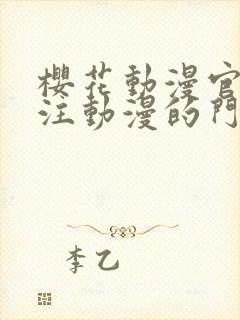 櫻花動漫官
注動漫的門
李乙